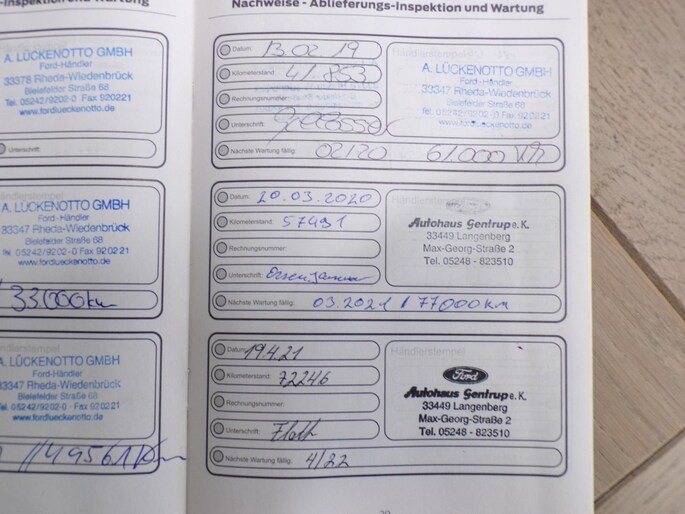 -Inspektion und Wartung
A. LÜCKENOTTO GMBH
Ford-Händler
33378 Rheda-Wiedenbrück
Bielefelder Straße 68
Tel. 05242/9202-0 Fax 920221
www.fordlueckenotto.de
Unterschrift:
A. LÜCKENOTTO GMBH
Ford-Händler
33347 Rheda-Wiedenbrück
Bielefelder Straße 68
Tel. 05242/9202-0 Fax 920221
www.fordlueckenotto.de
33000km
A. LÜCKENOTTO GMBH
Ford-Händler
33347 Rheda-Wiedenbrück
Bielefelder Straße 68
Tel. 05242/9202-0 Fax 920221
www.fordlueckenotto.de
Nachweise - Ablieferungs-Inspektion und Wartung
Datum: 13.02.19
Kilometerstand: 41.853
Rechnungsnummer:
Unterschrift:
Nächste Wartung fällig: 02/20 61.000
A. LÜCKENOTTO GMBH
Ford-Händler
33347 Rheda-Wiedenbrück
Bielefelder Straße 68
Tel. 05242/9202-0 Fax 920221
www.fordlueckenotto.de
Datum: 20.03.2020
Kilometerstand: 57491
Rechnungsnummer:
Unterschrift:
Nächste Wartung fällig: 03.2021 / 77000km
Händlerstempel
Autohaus Gentrup e.K.
33449 Langenberg
Max-Georg-Straße 2
Tel. 05248 - 823510
Datum: 19.4.21
Kilometerstand: 72246
Rechnungsnummer:
Unterschrift:
Nächste Wartung fällig: 4/22
Händlerstempel
Ford
Autohaus Gentrup e.K.
33449 Langenberg
Max-Georg-Straße 2
Tel. 05248 - 823510